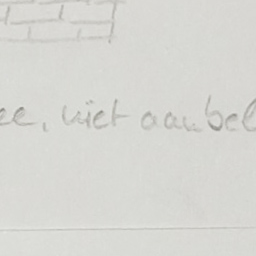 ee, niet aanbel